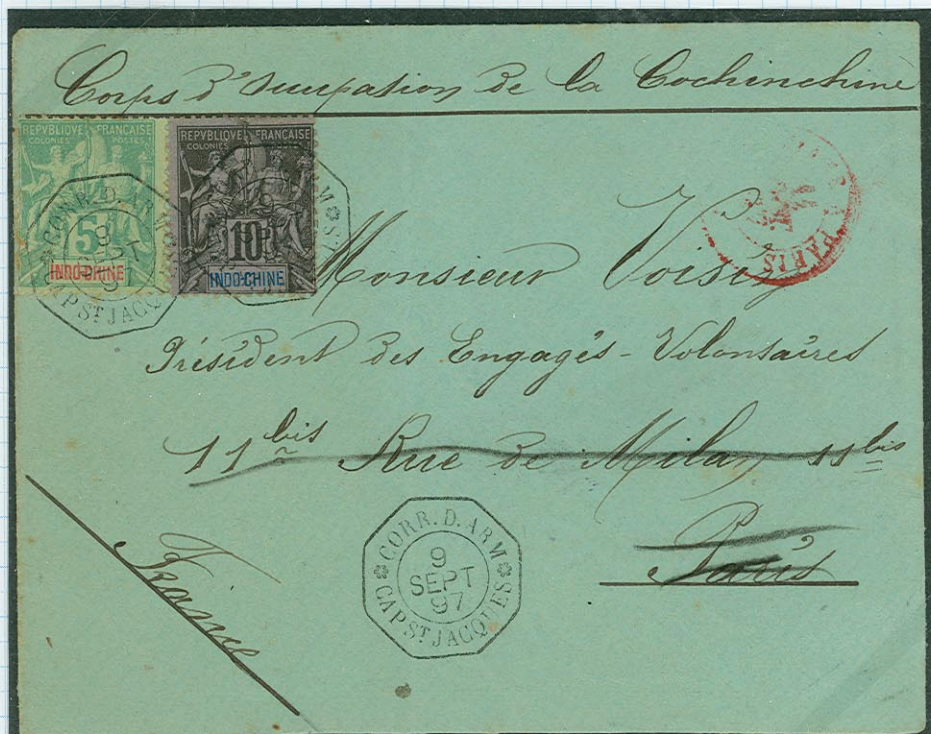 Corps d'Occupation de la Cochinchine
REPVBLIQVE FRANÇAISE
COLONIES POSTES
5
INDO-CHINE
REPVBLIQVE FRANÇAISE
COLONIES
10
INDO-CHINE
CORR. D. ARM
9
SEPT
97
CAP ST JACQUES
PARIS
Monsieur Voisin
Président des Engagés-Volontaires
11 bis Rue de Milan 11 bis
Paris
France
CORR. D. ARM
9
SEPT
97
CAP ST JACQUES